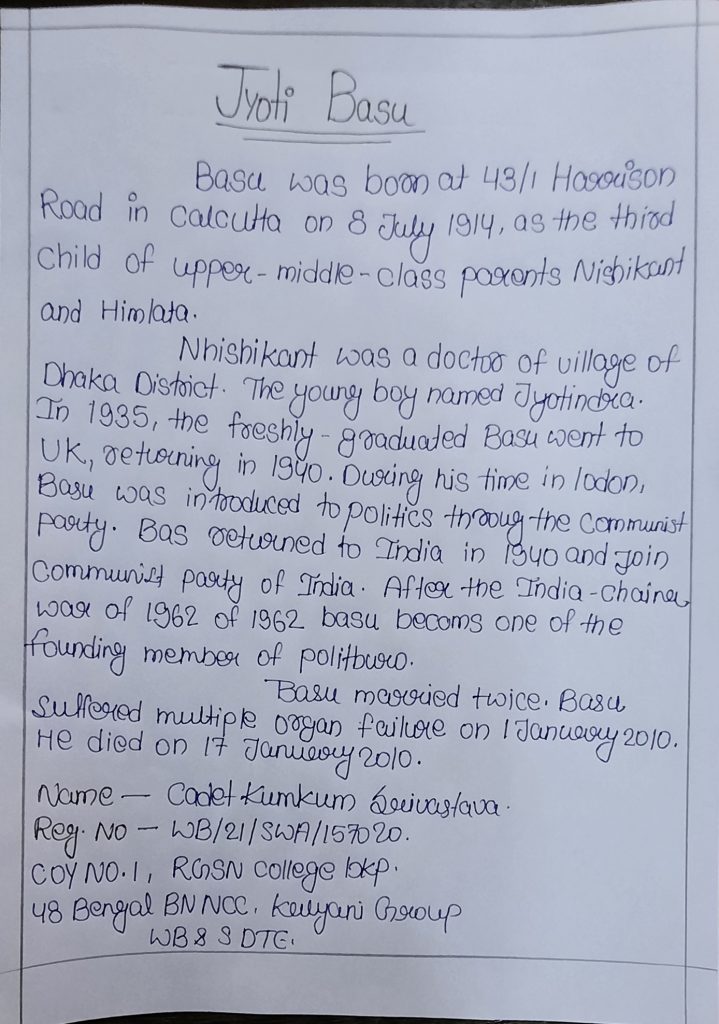 Jyoti Basu
Basu was born at 43/1 Harrison
Road in Calcutta on 8 July 1914, as the third
child of upper-middle-class parents Nishikant
and Himlata.
Nhishikant was a doctor of village of
Dhaka District. The young boy named Jyotindra.
In 1935, the freshly-graduated Basu went to
UK, returning in 1940. During his time in lodon,
Basu was introduced to politics throug the Communist
Party. Bas returned to India in 1940 and join
Communist party of India. After the India-chaina
war of 1962 of 1962 basu becoms one of the
founding member of politburo.
Basu married twice. Basu
Suffered multiple organ failure on 1 January 2010.
He died on 17 January 2010.
Name - Cadet Kumkum Srivastava.
Reg. No - WB/21/SWA/157020.
COY NO.1, RGSN College bkp.
48 Bengal BN NCC, Kalyani Group
WB & S DTE.